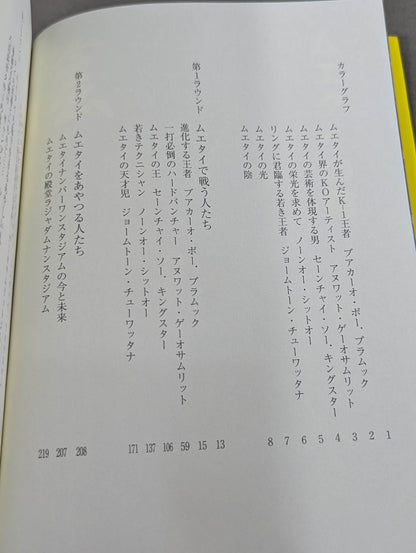 カラーグラフ
ムエタイが生んだK-1王者 ブアカーオ・ポー．プラムック 1
ムエタイ界のKOアーティスト アヌワット・ゲーオサムリット 2
ムエタイの芸術を体現する男 セーンチャイ・ソー．キングスター 3
ムエタイの栄光を求めて ノーンオー・シットオー 4
リングに君臨する若き王者 ジョームトーン・チューワッタナ 5
ムエタイの光 6
ムエタイの陰 7
8
第1ラウンド ムエタイで戦う人たち 13
進化する王者 ブアカーオ・ポー．プラムック 15
一打必倒のハードパンチャー アヌワット・ゲーオサムリット 59
ムエタイの王 セーンチャイ・ソー．キングスター 106
若きテクニシャン ノーンオー・シットオー 137
ムエタイの天才児 ジョームトーン・チューワッタナ 171
第2ラウンド ムエタイをあやつる人たち 208
ムエタイナンバーワンスタジアムの今と未来 207
ムエタイの殿堂ラジャダムナンスタジアム 219